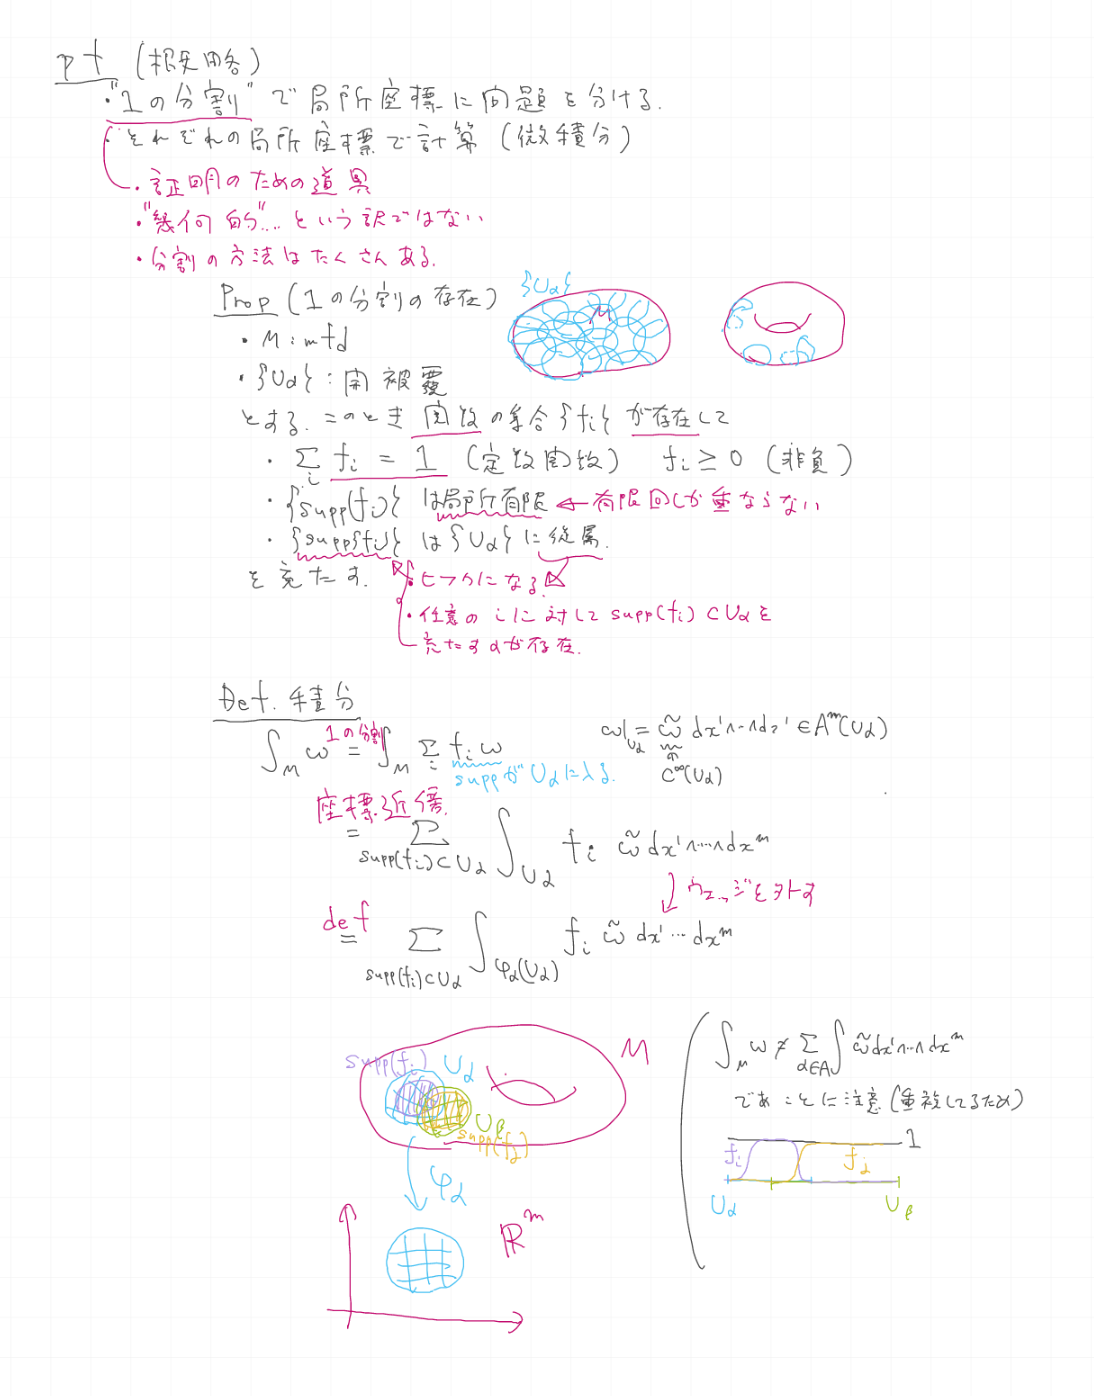 pf (概略)
・"1の分割"で局所座標に問題を分ける.
・それぞれの局所座標で計算(微積分)
・証明のための道具
・"幾何的"...という訳ではない
・分割の方法はたくさんある.
Prop (1の分割の存在)
{Uα}
M
・M:mfd
・{Uα}:開被覆
とする.このとき関数の集合{fi}が存在して
・∑i fi = 1 (定数関数) fi ≥ 0 (非負)
・{supp(fi)} は局所有限 ← 有限回しか重ならない
・{supp fi} は {Uα} に従属.
を充たす.
・ヒフクになる.
・任意の i に対して supp(fi) ⊂ Uα を
充たす α が存在.
Def. 積分
∫M ω = ∫M ∑i fi ω
1の分割
suppが Uα に入る.
ω|Uα = ω̃ dx¹∧…∧dx¹ ∈ Aᵐ(Uα)
C∞(Uα)
座標近傍
= ∑supp(fi)⊂Uα ∫Uα fi ω̃ dx¹∧…∧dxᵐ
↓ ウェッジを外す
def
= ∑supp(fi)⊂Uα ∫φα(Uα) fi ω̃ dx¹…dxᵐ
supp(fi) Uα M
Uβ
supp(fj)
φα
ℝᵐ
∫M ω ≠ ∑α∈A ∫ ω̃ dx¹∧…∧dxᵐ
であことに注意(重複してるため)
1
fi fj
Uα Uβ